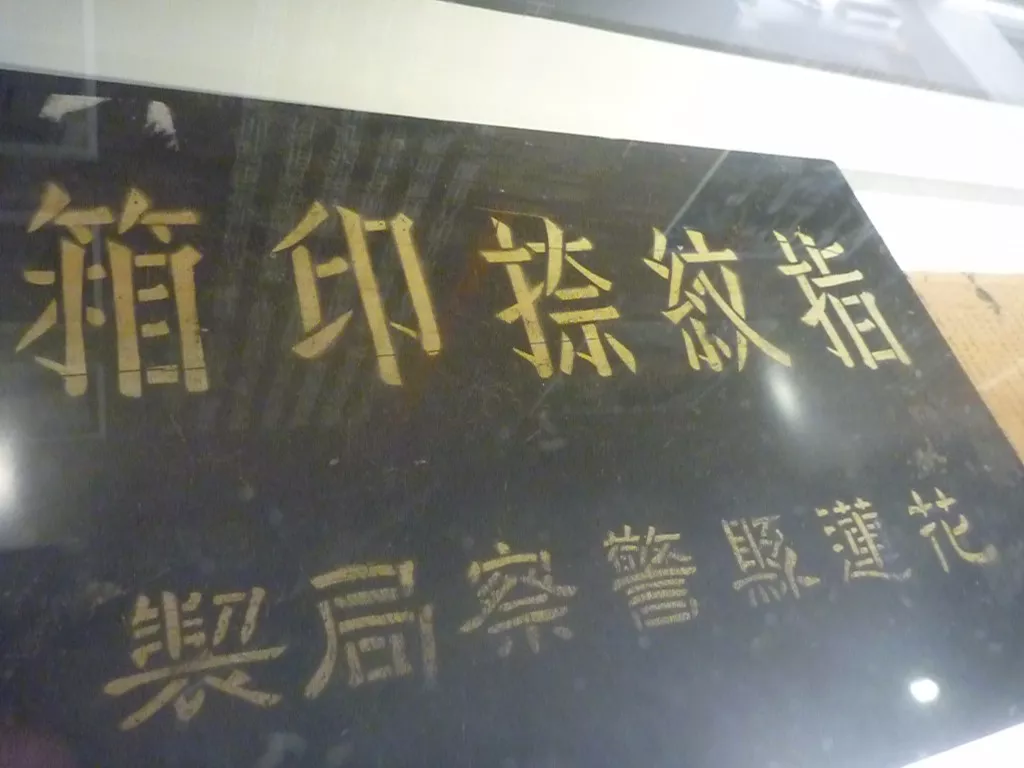 指紋捺印箱
花蓮縣警察局製